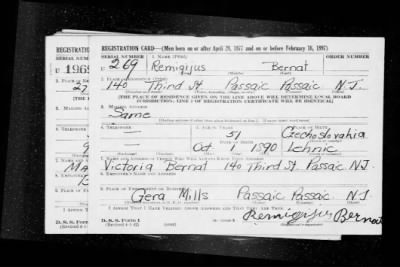 REGISTRATION CARD—(Men born on or after April 28, 1877 and on or before February 16, 1897)
SERIAL NUMBER 1. NAME (Print) ORDER NUMBER
U 269 Remigijus Bernat
(First) (Middle) (Last)
2. PLACE OF RESIDENCE (Print)
140 Third St. Passaic Passaic N.J.
[THE PLACE OF RESIDENCE GIVEN ON THE LINE ABOVE WILL DETERMINE LOCAL BOARD
JURISDICTION; LINE 2 OF REGISTRATION CERTIFICATE WILL BE IDENTICAL]
3. MAILING ADDRESS
Same
4. TELEPHONE 5. AGE IN YEARS 6. PLACE OF BIRTH
— 51 Czechoslovakia
DATE OF BIRTH
Oct 1 1890 Lehnic
7. NAME AND ADDRESS OF PERSON WHO WILL ALWAYS KNOW YOUR ADDRESS
Victoria Bernat 140 Third St. Passaic N.J.
8. EMPLOYER'S NAME AND ADDRESS
9. PLACE OF EMPLOYMENT OR BUSINESS
Gera Mills Passaic Passaic N.J.
I AFFIRM THAT I HAVE VERIFIED ABOVE ANSWERS AND THAT THEY ARE TRUE.
D.S.S. Form 1
Remigijus Bernat
REGISTRATION
SERIAL NUMBER
U 1969
D.S.S. Form 1